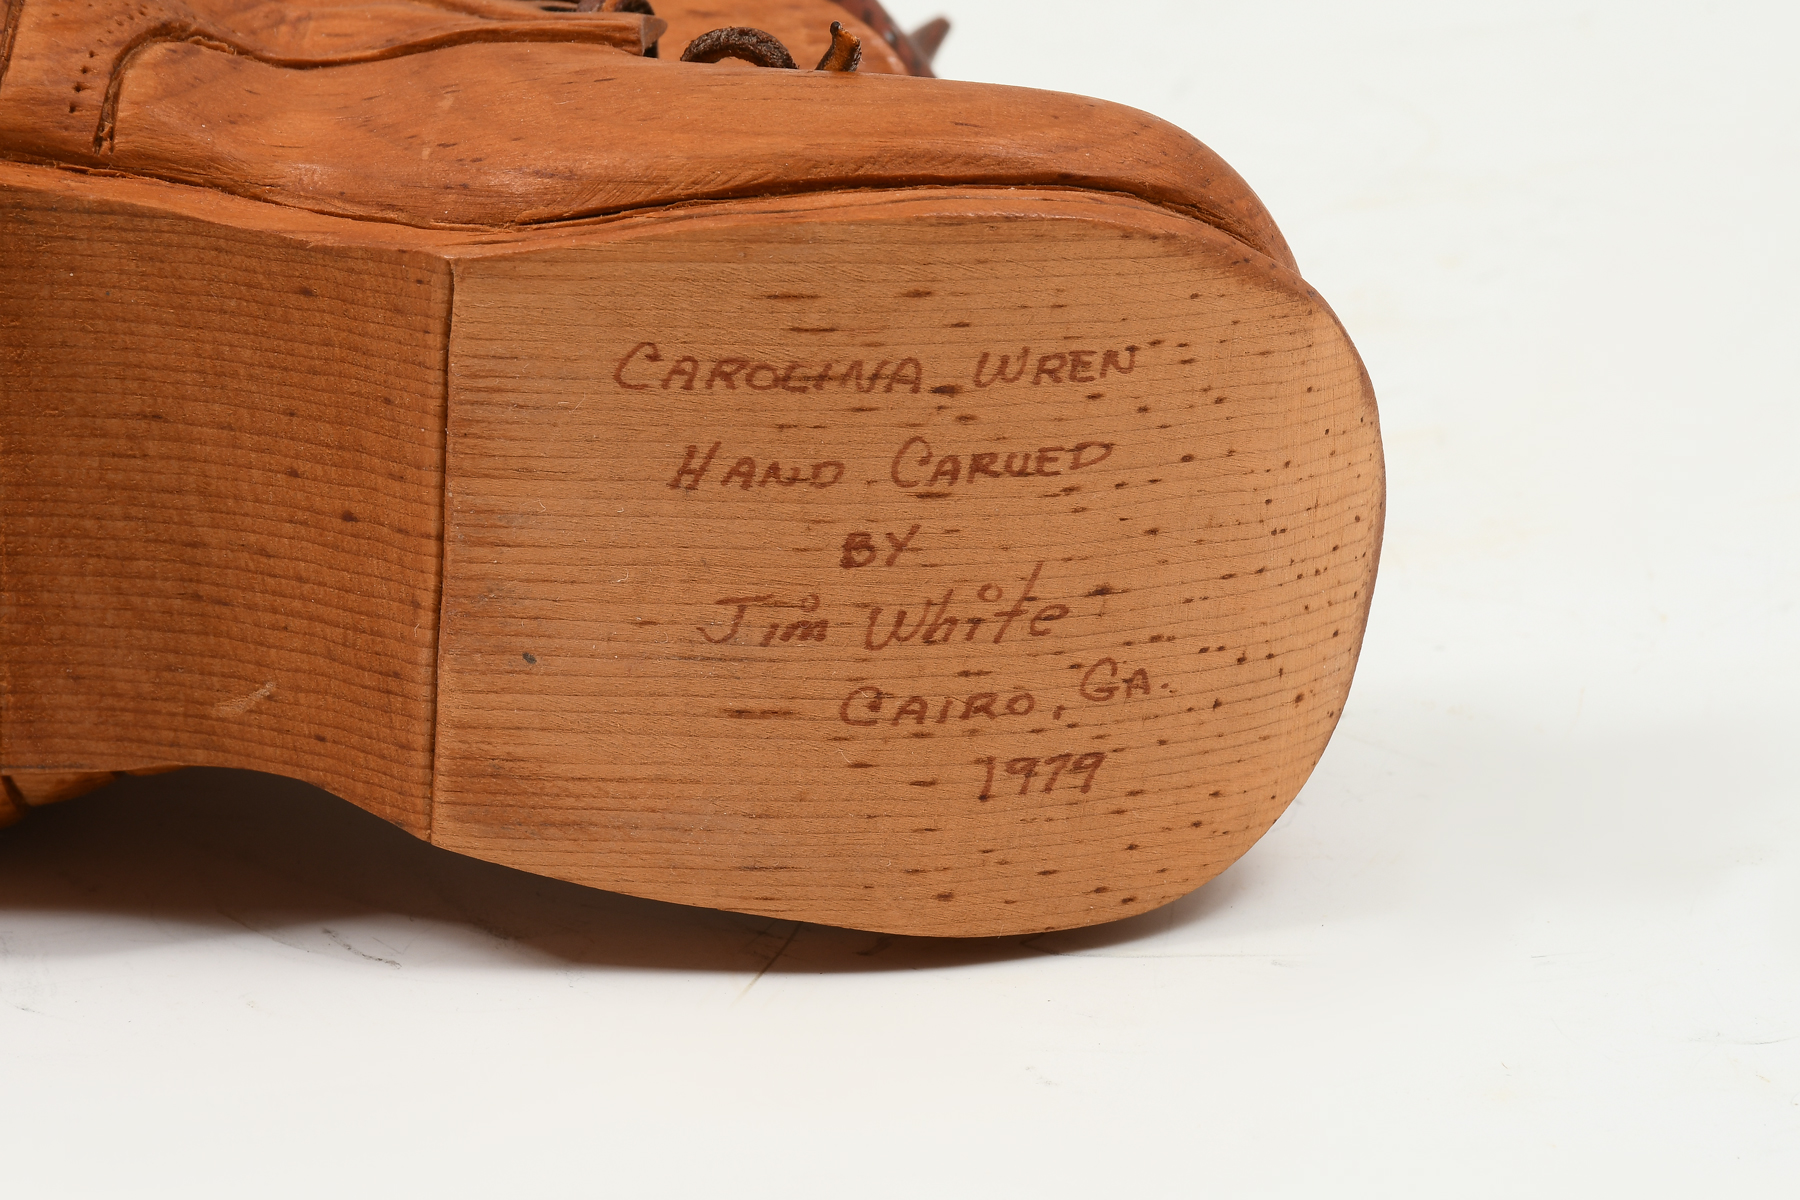 CAROLINA WREN
HAND CARVED
BY
Jim White
CAIRO, GA.
1979